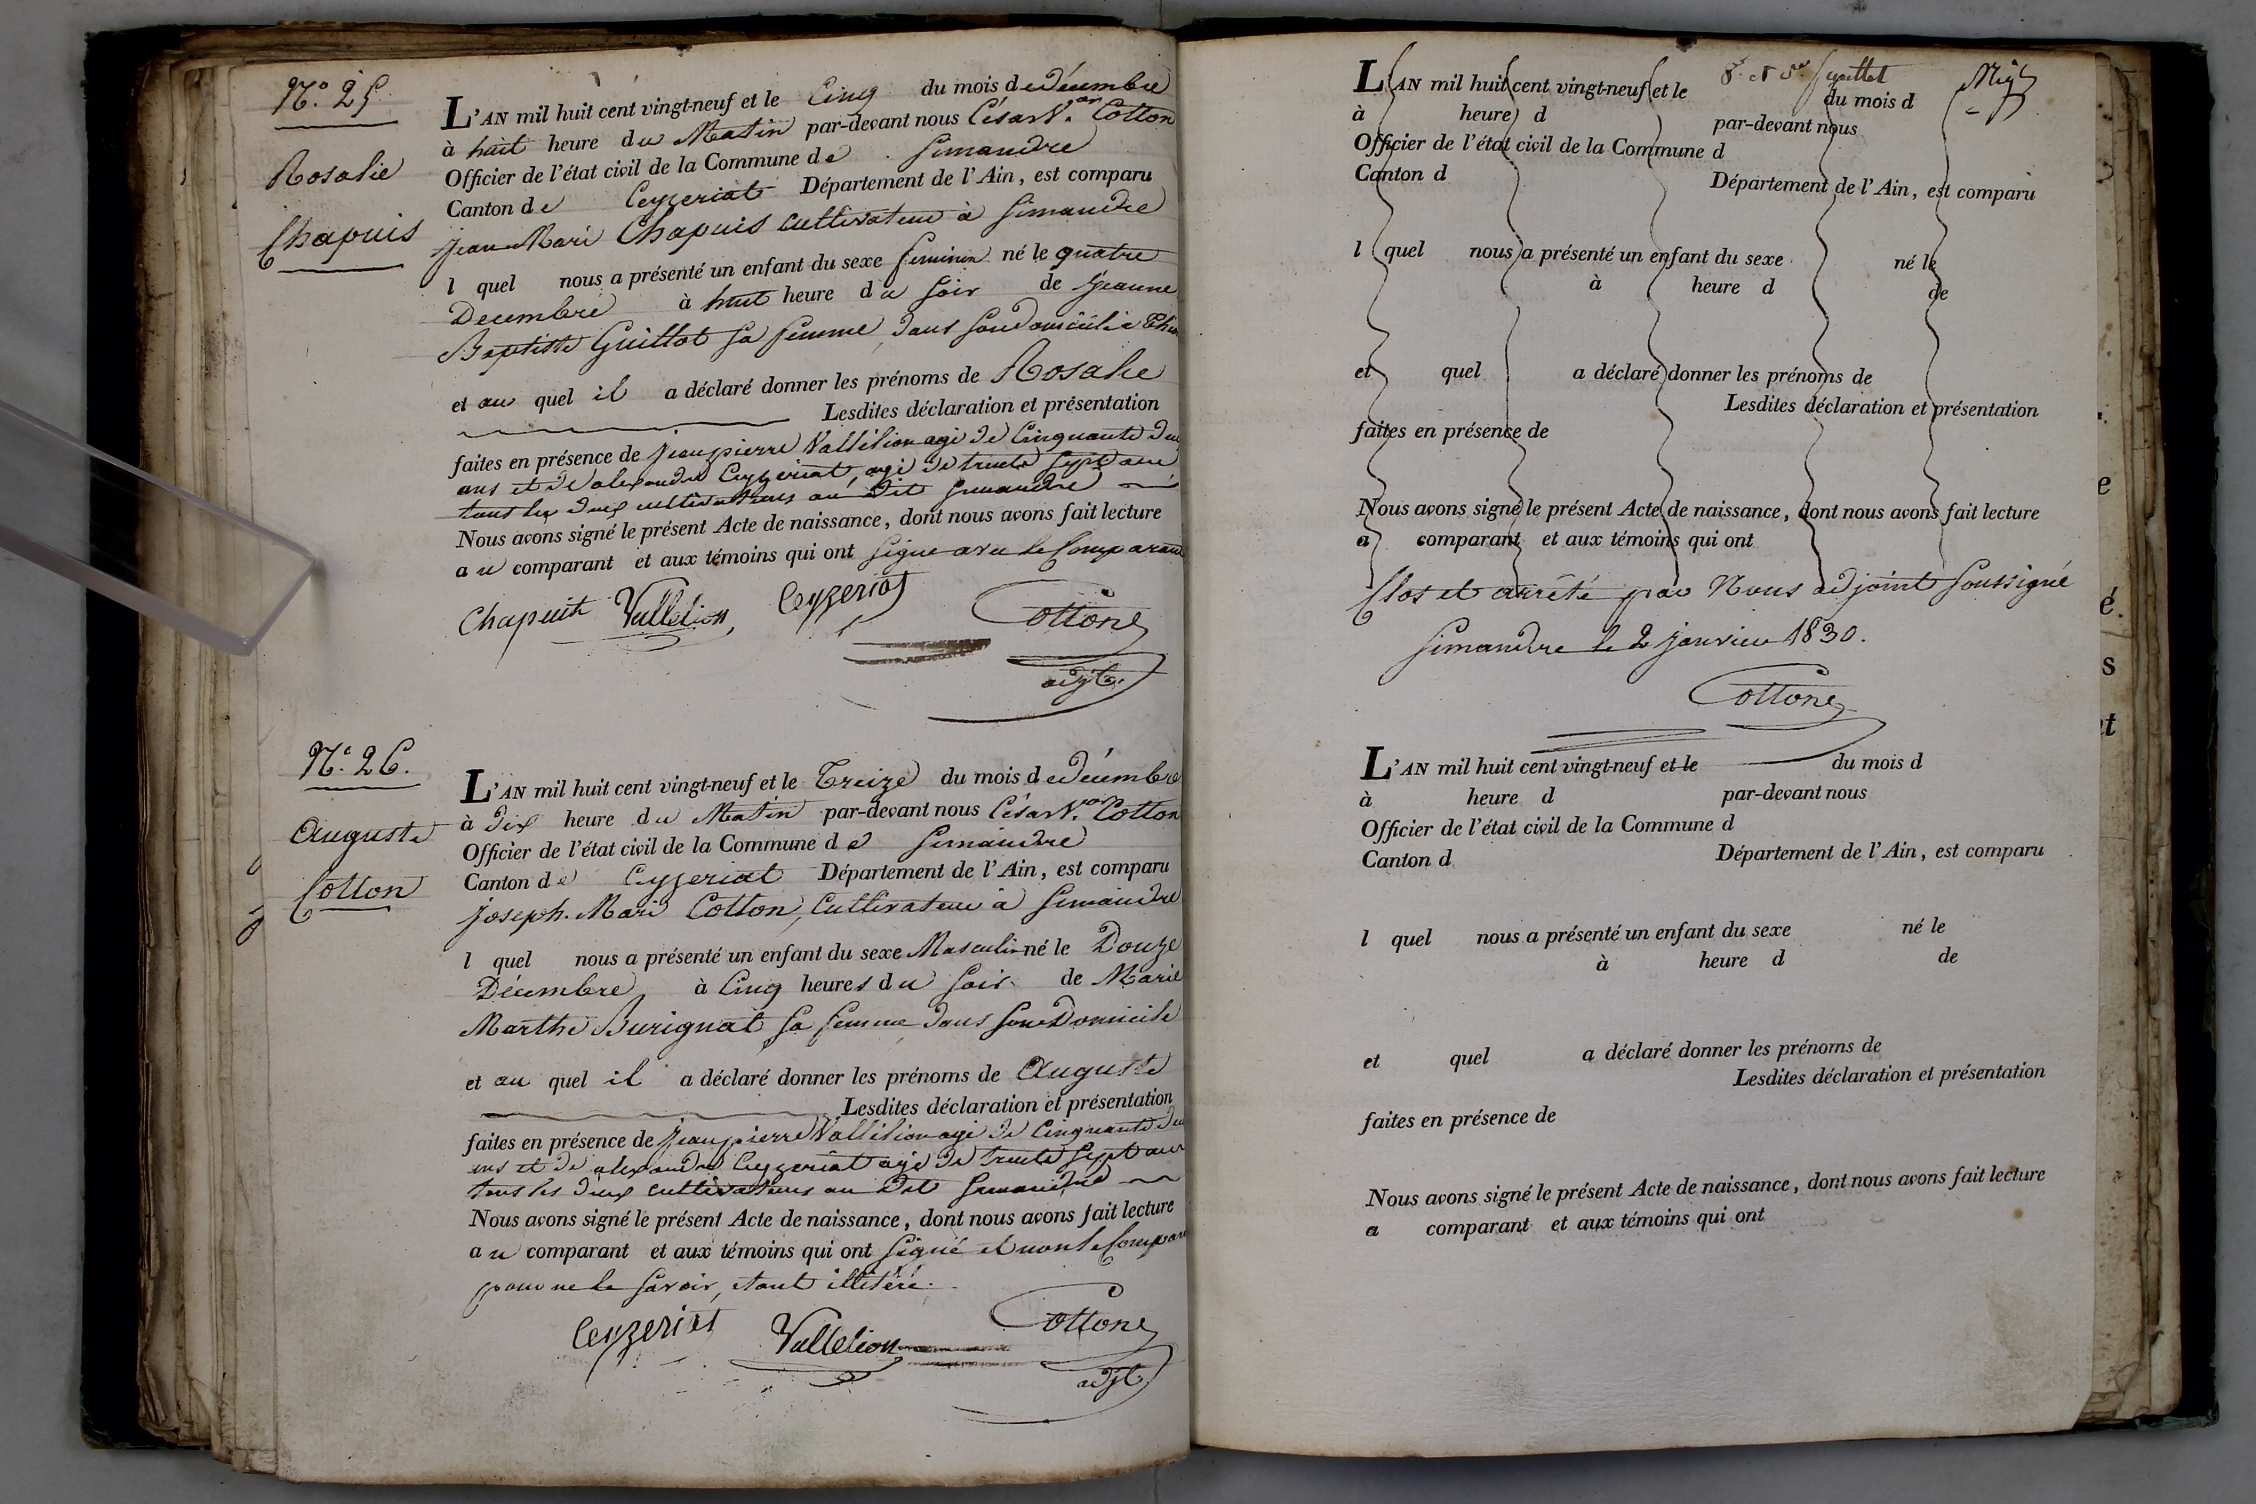 N.o 25
Rosalie
Chapuis
L'AN mil huit cent vingt-neuf et le Cinq du mois de décembre
à huit heure du Matin par-devant nous César V.or Cotton
Officier de l'état civil de la Commune de Simandre
Canton de Ceyzeriat Département de l'Ain, est comparu
Jean Mari Chapuis cultivateur à Simandre
l quel nous a présenté un enfant du sexe feminin né le quatre
Decembre à huit heure du soir de Jeanne
Baptiste Guillot sa femme, dans son domicile à
et au quel il a déclaré donner les prénoms de Rosalie
Lesdites déclaration et présentation
faites en présence de Jeanpierre Vallélion agé de Cinquante deux
ans et de alexandre Ceyzeriat agé de trente sept ans
tous les deux cultivateurs au dit Simandre
Nous avons signé le présent Acte de naissance, dont nous avons fait lecture
au comparant et aux témoins qui ont signé avec le Comparant
Chapuit Vallelion Ceyzeriat Cottone
adjt.
N.o 26.
Auguste
Cotton
L'AN mil huit cent vingt-neuf et le Treize du mois de décembre
à dix heure du Matin par-devant nous César V.or Cotton
Officier de l'état civil de la Commune de Simandre
Canton de Ceyzeriat Département de l'Ain, est comparu
joseph-Mari Cotton, Cultivateur à Simandre
l quel nous a présenté un enfant du sexe Masculin né le Douze
Décembre à Cinq heures du soir de Marie
Marthe Burignat sa femme dans son Domicile
et au quel il a déclaré donner les prénoms de Auguste
Lesdites déclaration et présentation
faites en présence de Jeanpierre Vallélion agé de Cinquante deux
ans et de alexandre Ceyzeriat agé de trente sept ans
tous les deux cultivateurs au dit Simandre
Nous avons signé le présent Acte de naissance, dont nous avons fait lecture
au comparant et aux témoins qui ont signé et non le Comparant
pour ne le savoir, étant illitéré.
Ceyzeriat Vallelion Cottone
adjt.
L'AN mil huit cent vingt-neuf et le du mois d
à heure d par-devant nous
Officier de l'état civil de la Commune d
Canton d Département de l'Ain, est comparu
l quel nous a présenté un enfant du sexe né le
à heure d de
et quel a déclaré donner les prénoms de
Lesdites déclaration et présentation
faites en présence de
Nous avons signé le présent Acte de naissance, dont nous avons fait lecture
a comparant et aux témoins qui ont
Clos et arrêté par Nous adjoint soussigné
Simandre le 2 janvier 1830.
Cottone
L'AN mil huit cent vingt-neuf et le du mois d
à heure d par-devant nous
Officier de l'état civil de la Commune d
Canton d Département de l'Ain, est comparu
l quel nous a présenté un enfant du sexe né le
à heure d de
et quel a déclaré donner les prénoms de
Lesdites déclaration et présentation
faites en présence de
Nous avons signé le présent Acte de naissance, dont nous avons fait lecture
a comparant et aux témoins qui ont